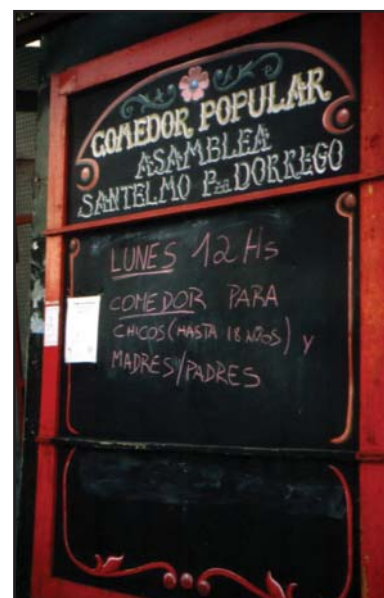 COMEDOR POPULAR
ASAMBLEA
SANTELMO Pza DORREGO
LUNES 12 Hs
COMEDOR PARA
CHICOS (HASTA 18 AÑOS) y
MADRES/PADRES